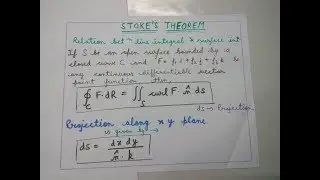 STOKE'S THEOREM
Relation betⁿ line integral & surface int
If S be an open surface bounded by a
closed curve C and F = f₁ i + f₂ j + f₃ k be
any continuous differentiable vector
point function then
∮_C F·dR = ∬_S curl F n̂ ds
ds → Projection
Projection along x y plane.
is given by →
ds = dx dy / n̂ · k